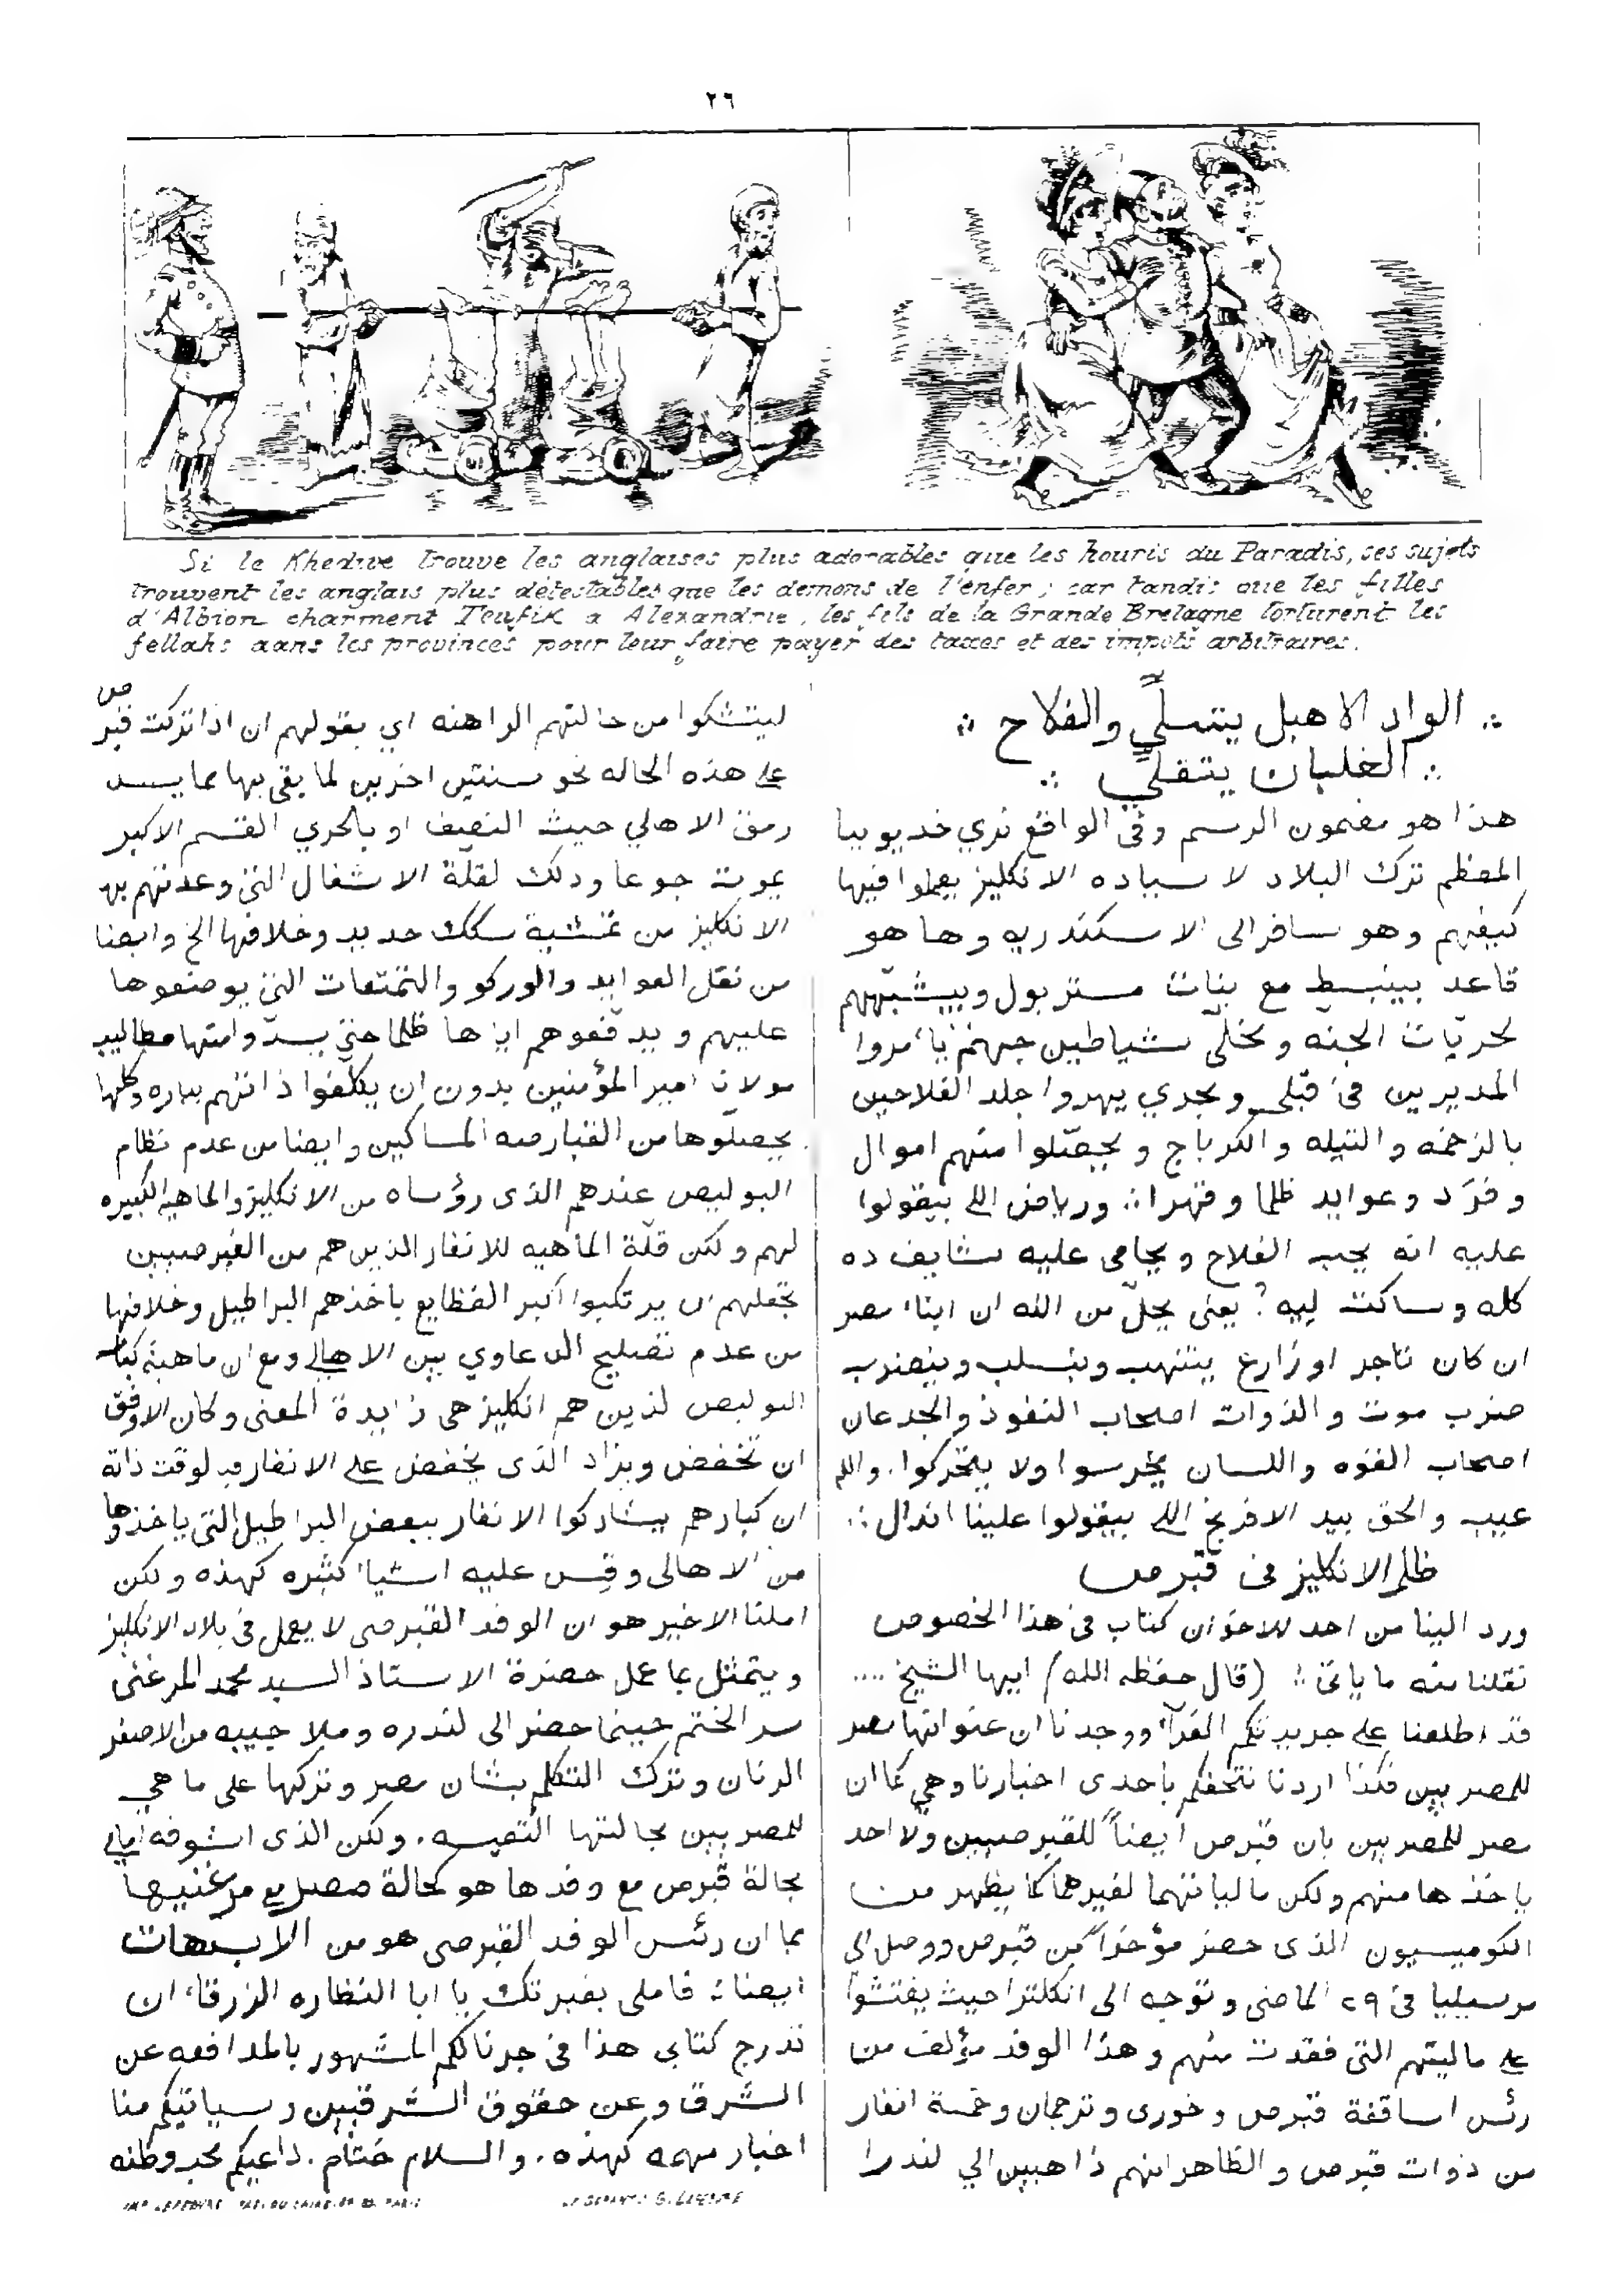 ٢٦
Si le Khedive trouve les anglaises plus adorables que les houris du Paradis, ses sujets
trouvent les anglais plus détestables que les demons de l'enfer; car tandis que les filles
d'Albion charment Teufik a Alexandrie, les fils de la Grande Bretagne torturent les
fellahs dans les provinces pour leur faire payer des taxes et des impots arbitraires.
∴ الواد الاهبل يتسلّى والفلاح ∴
∴ الغلبان يتقلّى ∴
هذا هو مضمون الرسم وفي الواقع نري خديوينا
المعظم ترك البلاد لاسياده الانكليز يعملوا فيها
كيفهم وهو سافر الى الاسكندريه وها هو
قاعد بينبسط مع بنات مستر بول وبيشبّههم
بحريّات الجنه ومخلّي شياطين جهنم يأمروا
المديرين في قبلي وبحري يهروا جلد الفلاحين
بالزخمه والنيله والكرباج ويحصّلوا منهم اموال
وفرَد وعوايد ظلما وقهرا ∴ ورياض اللي بيقولوا
عليه انه يحب الفلاح ويحامى عليه شايف ده
كله وساكت ليه؟ يعني يحلّ من الله ان ابناء مصر
ان كان تاجر او زارع يتنهب وينسلب وينضرب
ضرب موت والذوات اصحاب النفوذ والجدعان
اصحاب القوه واللسان يخرسوا ولا يتحركوا. والله
عيب والحق بيد الافرنج اللي بيقولوا علينا اندال ∴
ظلم الانكليز في قبرص
ورد الينا من احد الاخوان كتاب في هذا الخصوص
نقلنا منه ما يأتي: (قال حفظه الله) ايها الشيخ ....
قد اطلعنا على جريدتكم الغرآء ووجدنا ان عنوانها مصر
للمصريين فكذا اردنا نتحفكم باحدى اخبارنا وهي كما ان
مصر للمصريين بان قبرص أيضاً للقبرصيين ولا احد
ياخذها منهم ولكن مالياتهما لغيرهما كما يظهر من
الكوميسيون الذى حضر مؤخراً من قبرص ووصل الى
مرسيليا في ٢٩ الماضي وتوجه الى انكلترا حيث يفتشوا
على ماليتهم التي فقدت منهم وهذا الوفد مؤلف من
رئس اساقفة قبرص وخورى وترجمان وخمسة انفار
من ذوات قبرص والظاهر انهم ذاهبين الي لندرا
ليتشكوا من حالتهم الراهنه اي بقولهم ان اذا تركت قبرص
على هذه الحاله نحو سنتين اخرين لما بقى بها ما يسد
رمق الاهالي حيث النصف او بالحري القسم الاكبر
يموت جوعا وذلك لقلة الاشغال التي وعدتهم بها
الانكليز من تمشية سكك حديد وخلافها الخ وايضا
من ثقل العوايد والوركو والتمتعات التي يوضعوها
عليهم ويدفّعوهم اياها ظلما حتى يسدّوا منها مطاليب
مولانا امير المؤمنين بدون ان يكلّفوا ذاتهم بباره وكلها
يحصلوها من القبارصه المساكين وايضا من عدم نظام
البوليص عندهم الذى رؤساه من الانكليز والماهيه الكبيره
لهم ولكن قلّة الماهيه للانفار الذين هم من القبرصيين
تجعلهم ان يرتكبوا اكبر الفظايع بأخذهم البراطيل وخلافها
من عدم تصليح الدعاوي بين الاهالي ومع ان ماهية كبار
البوليص لذين هم انكليز هى زايدة المعنى وكان الاوفق
ان تخفض ويزاد الذى يخفض على الانفار وبه لوقت ذاته
ان كبارهم يشاركوا الانفار ببعض البراطيل التي ياخذوها
من الاهالى وقس عليه اشيا كثيره كهذه ولكن
املنا الاخير هو ان الوفد القبرصى لا يعمل في بلاد الانكليز
ويتمثل بما عمل حضرة الاستاذ السيد محمد المرغنى
سر الختم حينما حضر الى لندره وملا جيبه من الاصفر
الرنان وترك التكلم بشان مصر وتركها على ما هي
للمصريين بحالتها التعيسه. ولكن الذى اشوفه
بحالة قبرص مع وفدها هو كحالة مصر مع مرغنيها
بما ان رئس الوفد القبرصى هو من الابهات
ايضا ∴ فاملى بغيرتك يا ابا النظاره الزرقاء ان
تدرج كتابى هذا في جرنالكم المشهور بالمدافعه عن
الشرق وعن حقوق الشرقيين وسياتيكم منا
اخبار مهمه كهذه. والسلام ختام. داعيكم محب وطنه
Le Gérant G. Lefebre